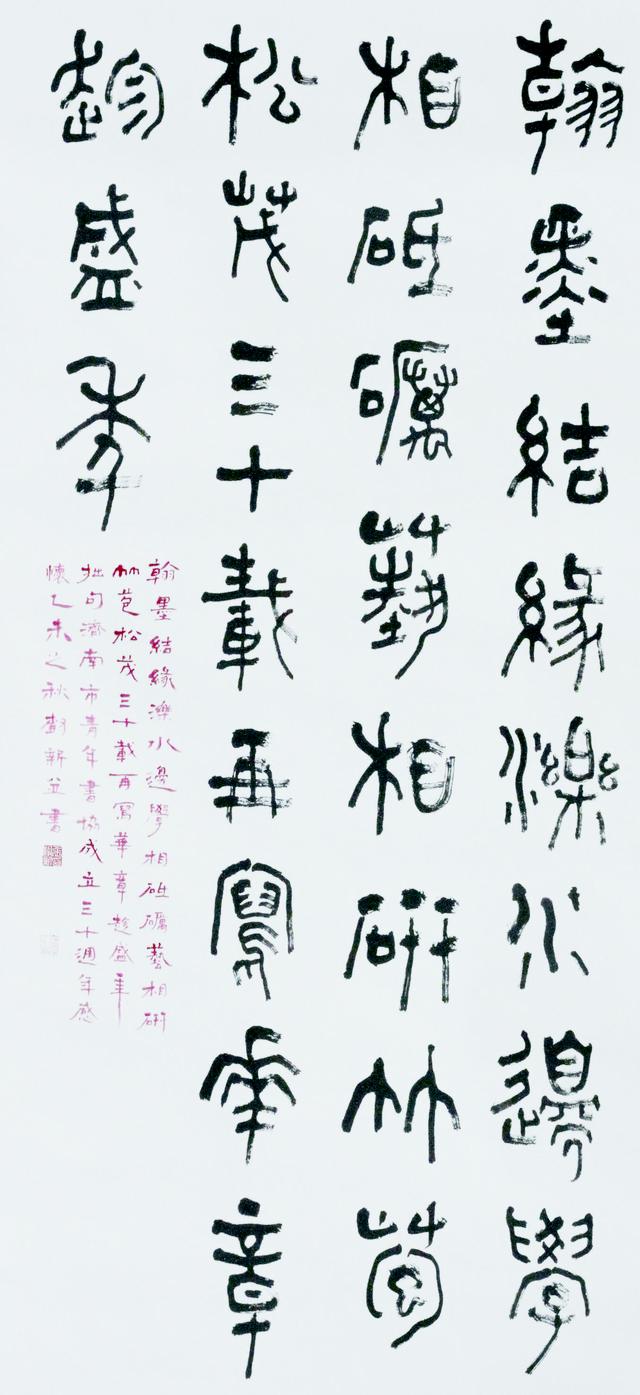 翰墨結緣濼水邊學
相砥礪藝相研竹苞
松茂三十載再寫華章
趁盛年
翰墨結緣濼水邊學相砥礪藝相研
竹苞松茂三十載再寫華章趁盛年
拙句濟南市青年書協成立三十週年感
懷乙未之秋新並書